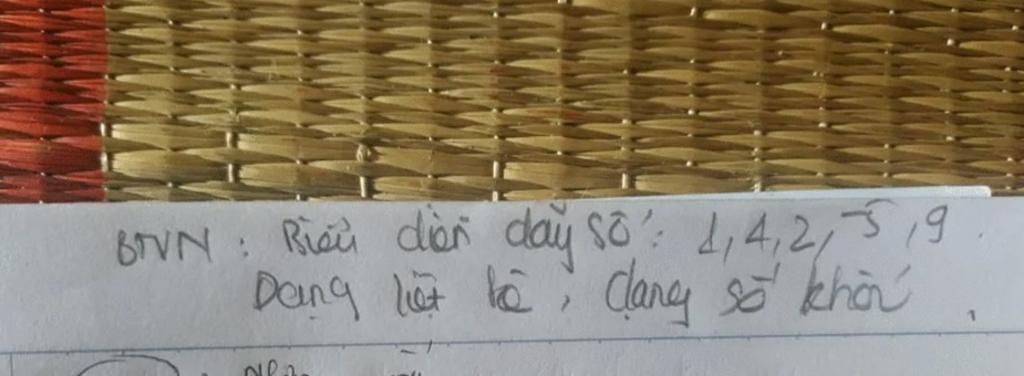 BTVN: Biểu diễn dãy số: 1, 4, 2, -5, 9.
Dạng liệt kê, dạng sơ khối.